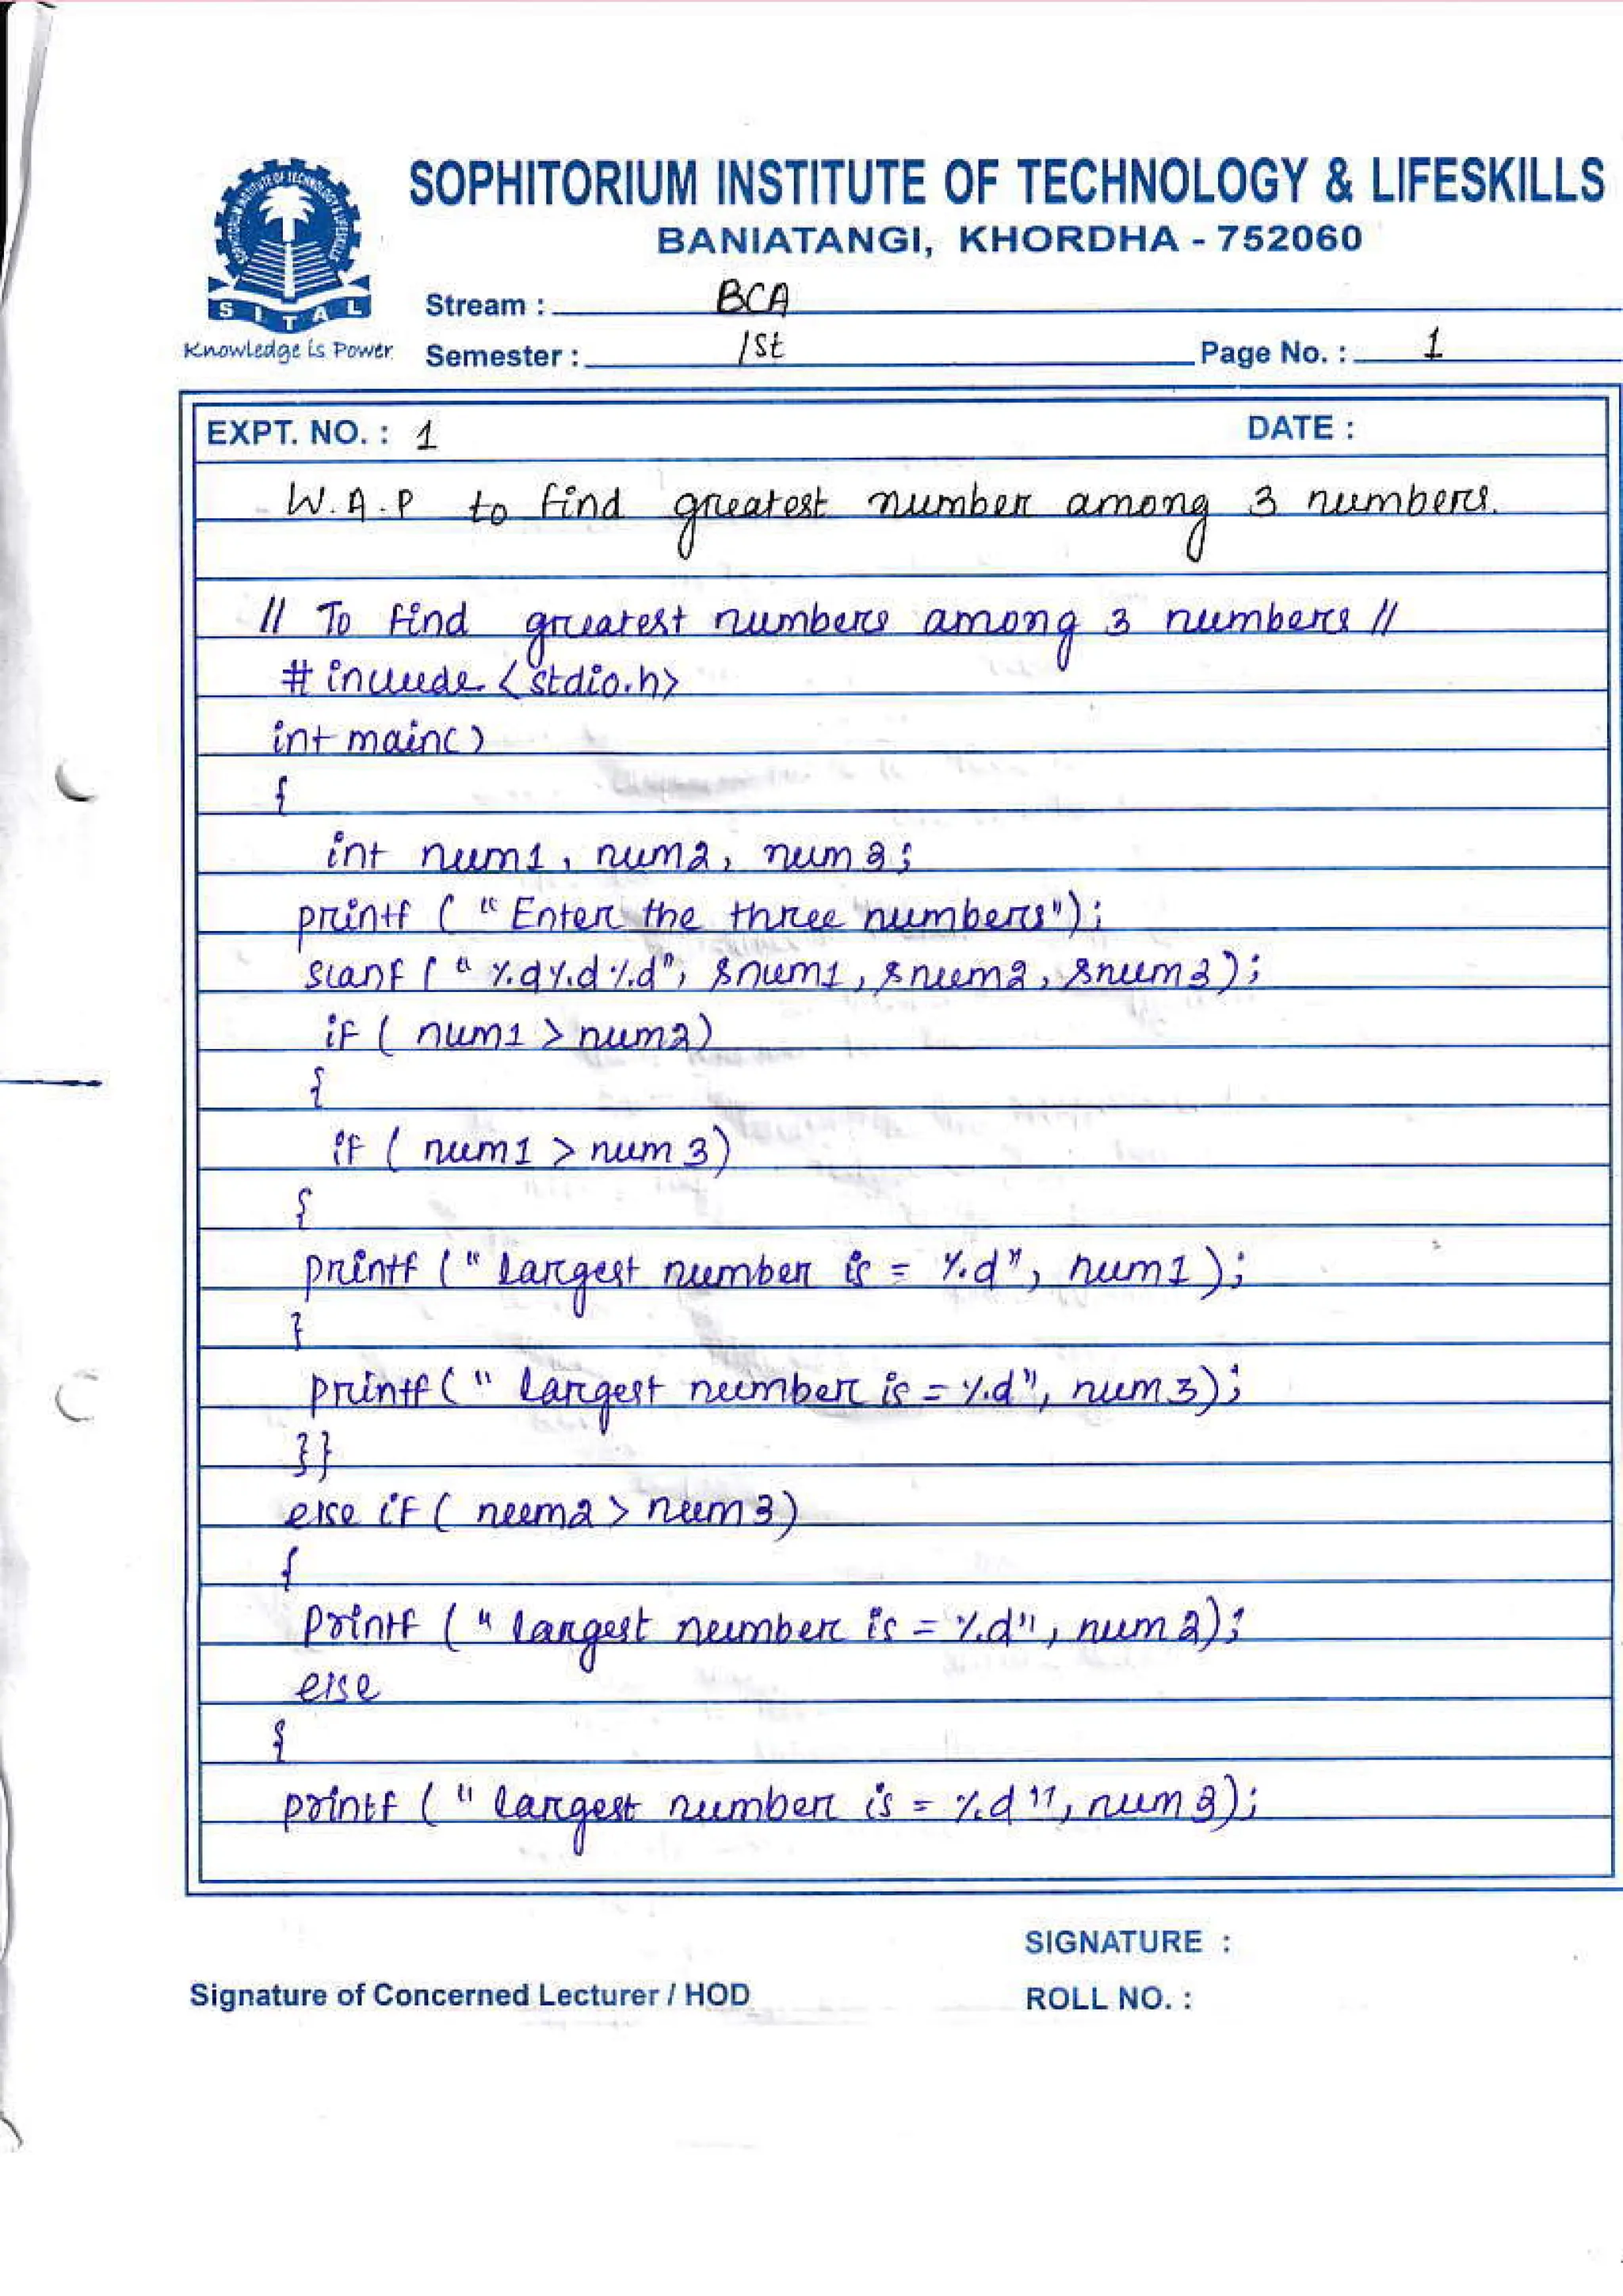 SOPHITORIUM INSTITUTE OF TECHNOLOGY & LIFESKILLS
BANIATANGI, KHORDHA - 752060
SOPHITORIUM INSTITUTE OF TECHNOLOGY & LIFESKILLS
SITAL
Knowledge is Power
Stream : BCA
Semester : 1st Page No. : 1
EXPT. NO. : 1 DATE :
W.A.P to find greatest number among 3 numbers.
// To find greatest numbers among 3 numbers //
# include <stdio.h>
int main()
{
int num1, num2, num3;
printf ( "Enter the three numbers");
scanf ( "%d%d%d", &num1, &num2, &num3);
if ( num1 > num2)
{
if ( num1 > num3)
{
printf ( "largest number is = %d", num1 );
}
printf ( " largest number is = %d", num3);
}}
else if ( num2 > num3)
{
printf ( "largest number is = %d", num2);
else
{
printf ( " largest number is = %d", num3);
SIGNATURE :
Signature of Concerned Lecturer / HOD ROLL NO. :